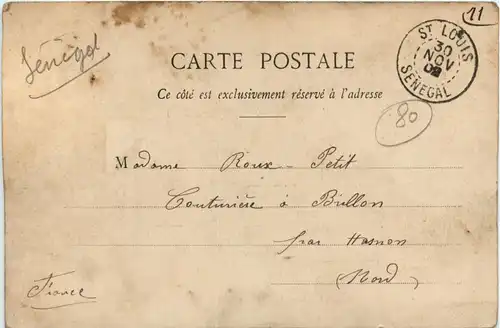 11
Sénégal
ST LOUIS
30
NOV
02
SENEGAL
CARTE POSTALE
Ce côté est exclusivement réservé à l'adresse
80
Madame Roux-Petit
Couturière à Brillon
par Hasnon
Nord
France